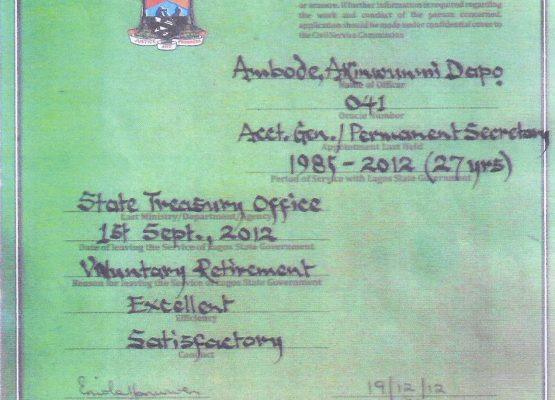 or erasure. If further information is required regarding
the work and conduct of the person concerned,
application should be made under confidential cover to
the Civil Service Commission
JUSTICE AND PROGRESS
Ambode, Akinwunmi Dapo
Name of Officer
041
Oracle Number
Acct. Gen./Permanent Secretary
Appointment Last Held
1985 - 2012 (27yrs)
Period of Service with Lagos State Government
State Treasury Office
Last Ministry/Department/Agency
1st Sept., 2012
Date of leaving the Service of Lagos State Government
Voluntary Retirement
Reason for leaving the Service of Lagos State Government
Excellent
Efficiency
Satisfactory
Conduct
19/12/12